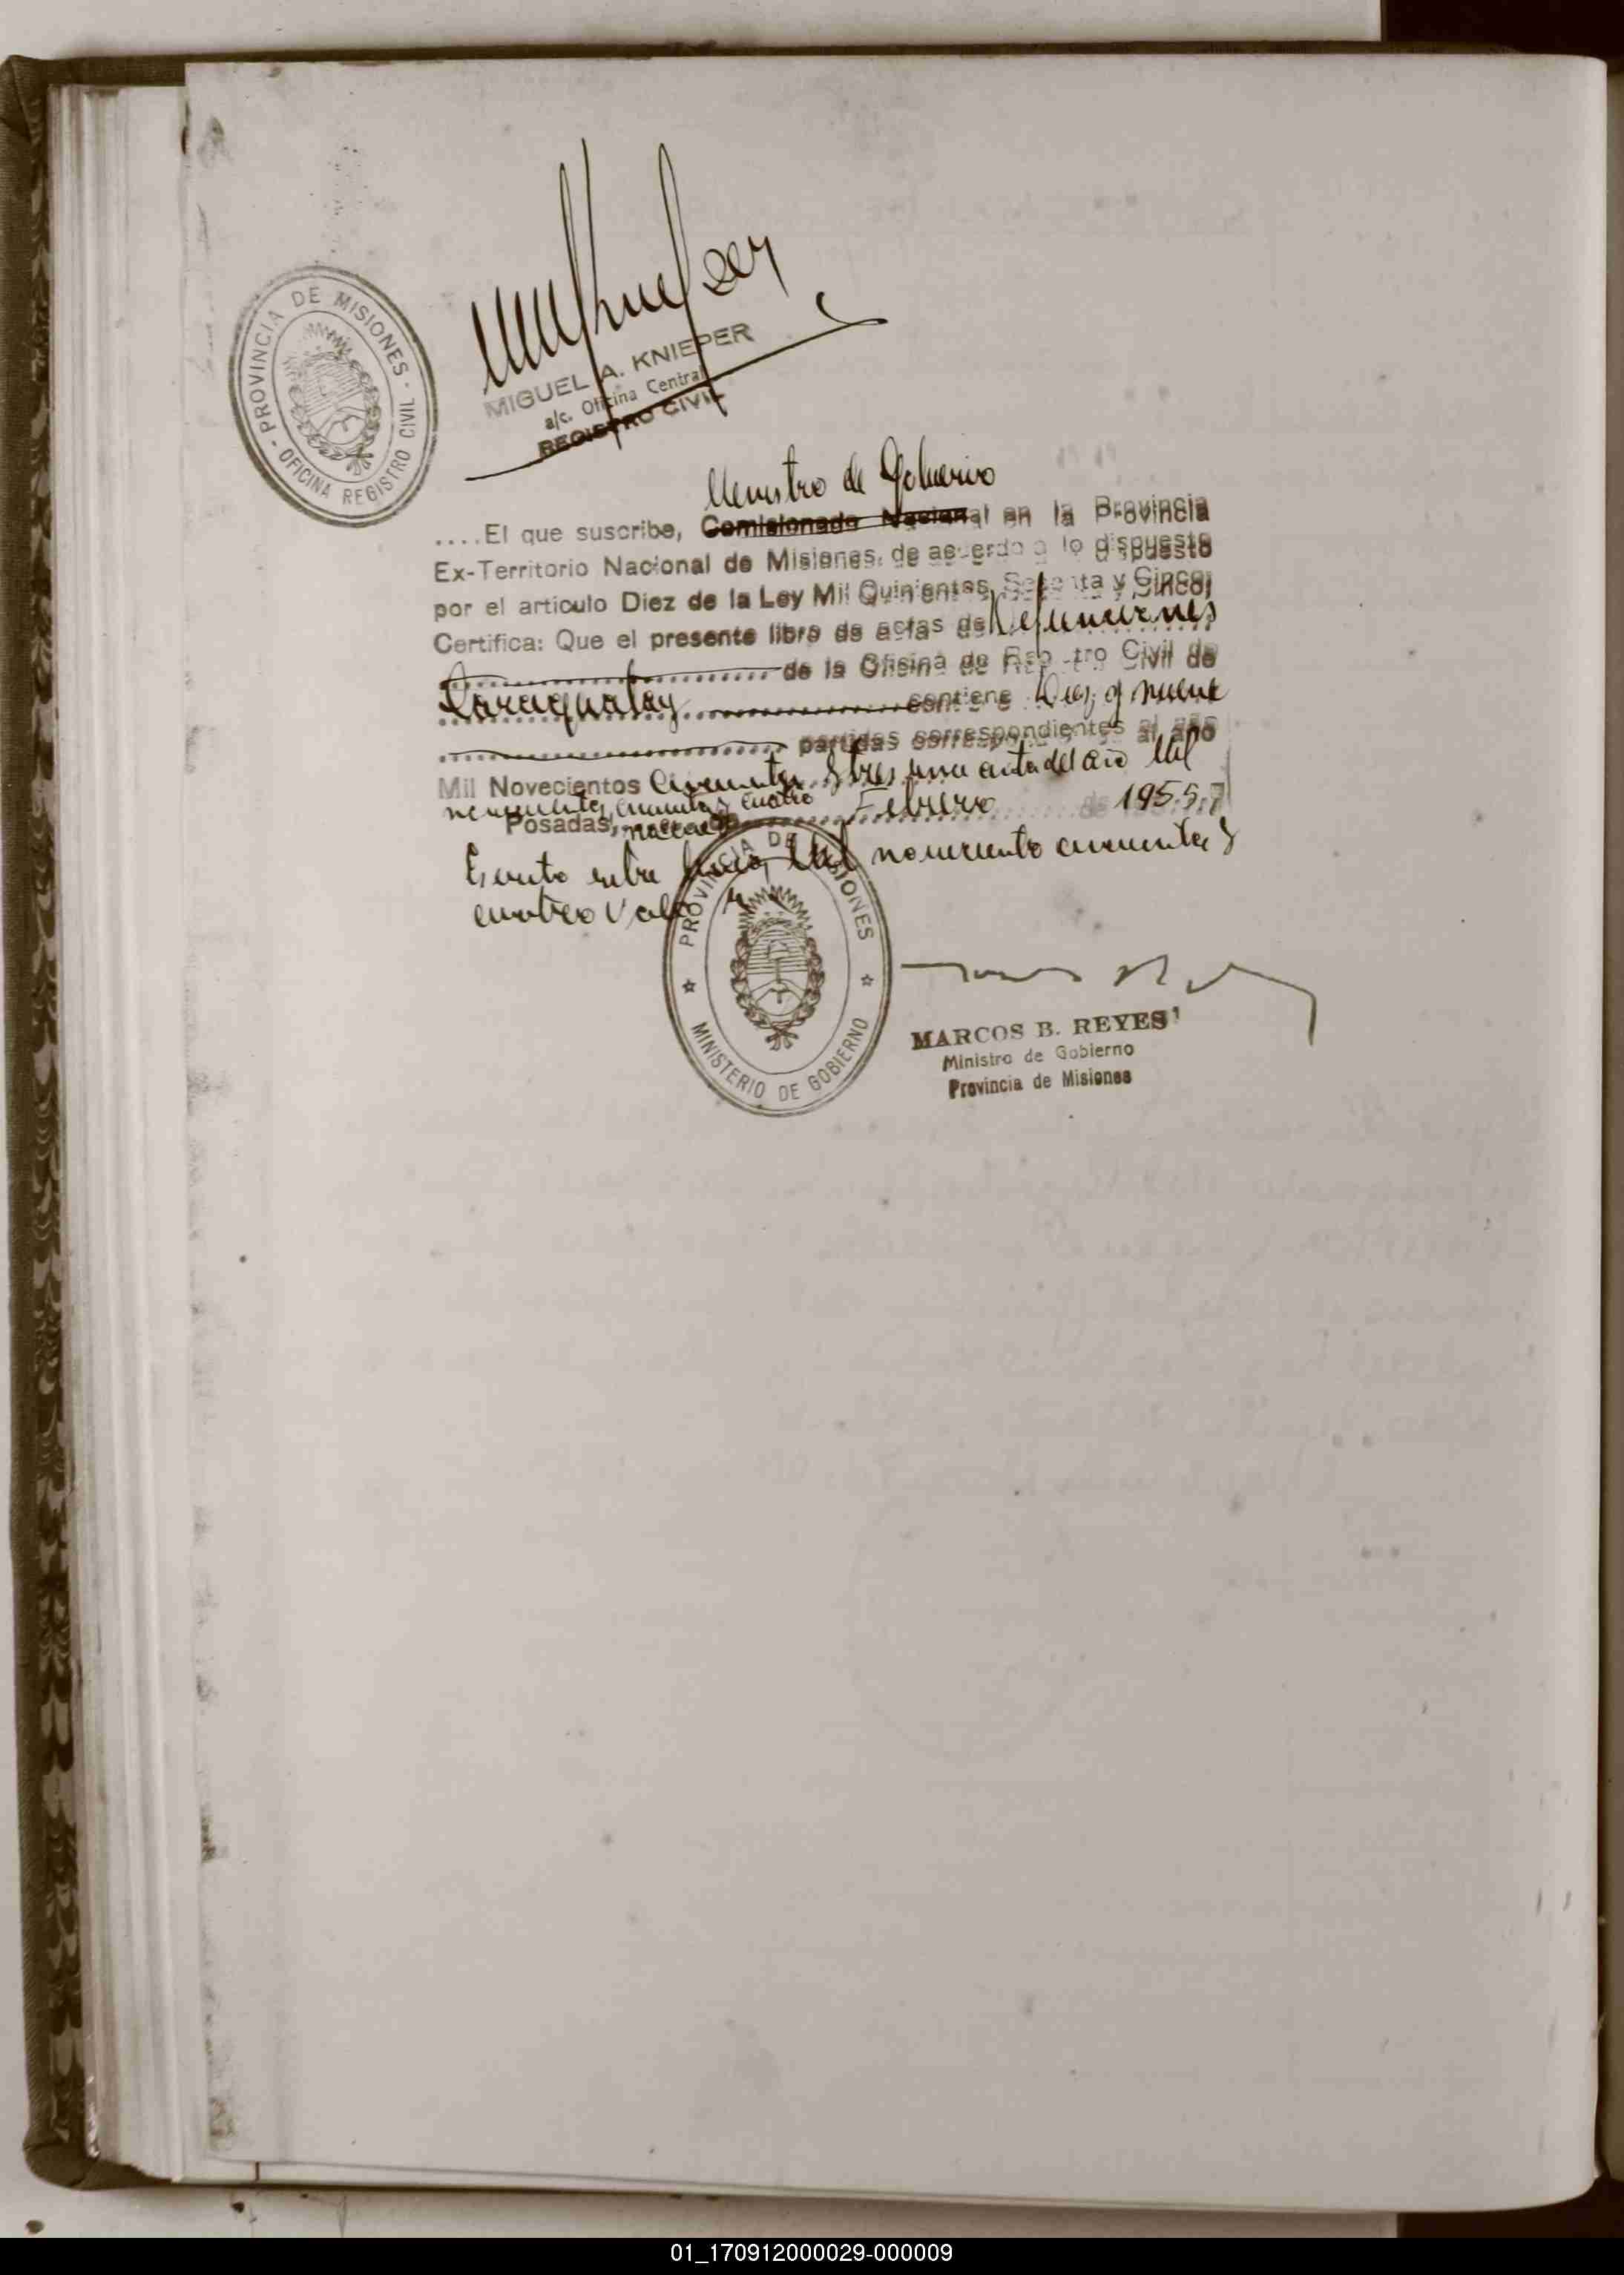 PROVINCIA DE MISIONES
OFICINA REGISTRO CIVIL
MIGUEL A. KNIEPER
a/c. Oficina Central
REGISTRO CIVIL
Ministro de Gobierno
....El que suscribe, Comisionado Nacional en la Provincia
Ex-Territorio Nacional de Misiones, de acuerdo a lo dispuesto
por el articulo Diez de la Ley Mil Quinientos Sesenta y Cinco,
Certifica: Que el presente libro de actas de Defunciones
de la Oficina de Registro Civil de
contiene Diez y nueve
partidas correspondientes al año
Mil Novecientos Cincuenta y tres una acta del año Mil
novecientos cincuenta y cuatro
Posadas, Febrero de 1955.
Escrito entre linea, Mil novecientos cincuenta y
cuatro Vale
PROVINCIA DE MISIONES
MINISTERIO DE GOBIERNO
MARCOS B. REYES
Ministro de Gobierno
Provincia de Misiones
01_170912000029-000009